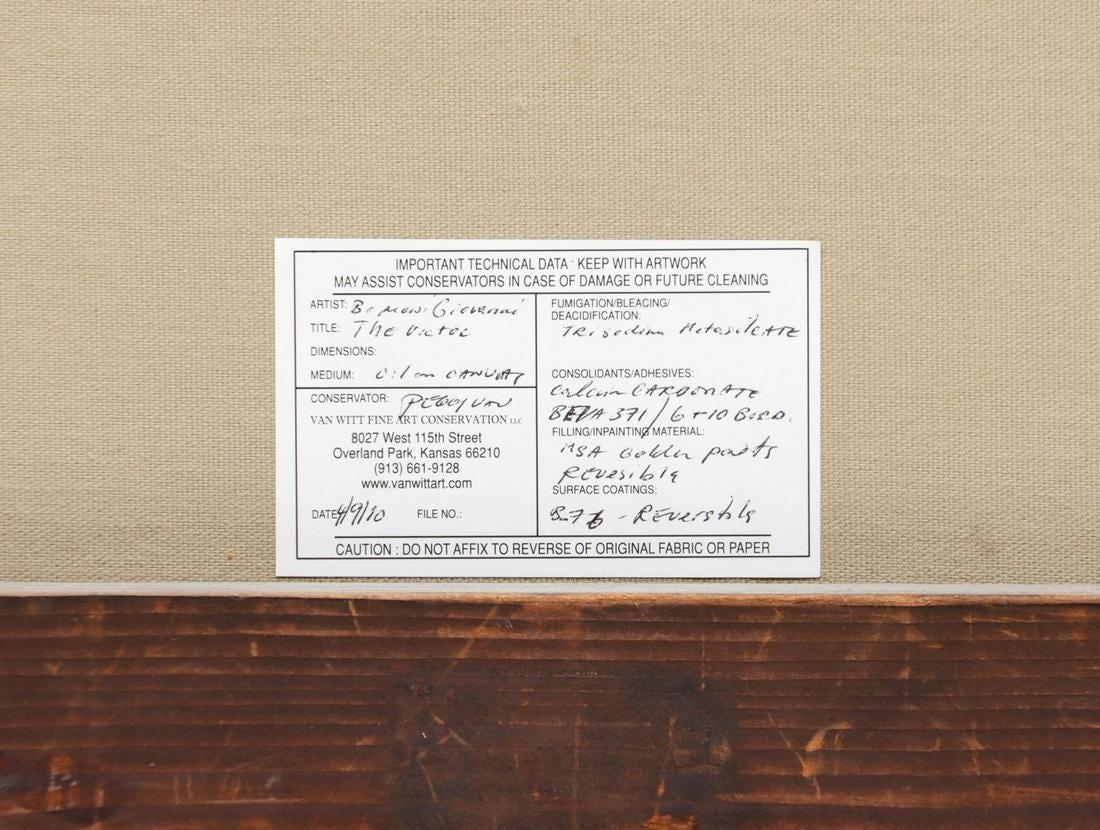 IMPORTANT TECHNICAL DATA · KEEP WITH ARTWORK
MAY ASSIST CONSERVATORS IN CASE OF DAMAGE OR FUTURE CLEANING
ARTIST: Giovanni
TITLE: The Victor
DIMENSIONS:
MEDIUM: Oil on CANVAS
CONSERVATOR: PEGGY VAN
VAN WITT FINE ART CONSERVATION LLC
8027 West 115th Street
Overland Park, Kansas 66210
(913) 661-9128
www.vanwittart.com
DATE 4/9/10 FILE NO.:
FUMIGATION/BLEACING/
DEACIDIFICATION:
TRisodium MetasilicATE
CONSOLIDANTS/ADHESIVES:
Calcium CARBONATE
BEVA 371 / 6+10
FILLING/INPAINTING MATERIAL:
MSA Golden
REVesible
SURFACE COATINGS:
B-76 - REversible
CAUTION : DO NOT AFFIX TO REVERSE OF ORIGINAL FABRIC OR PAPER